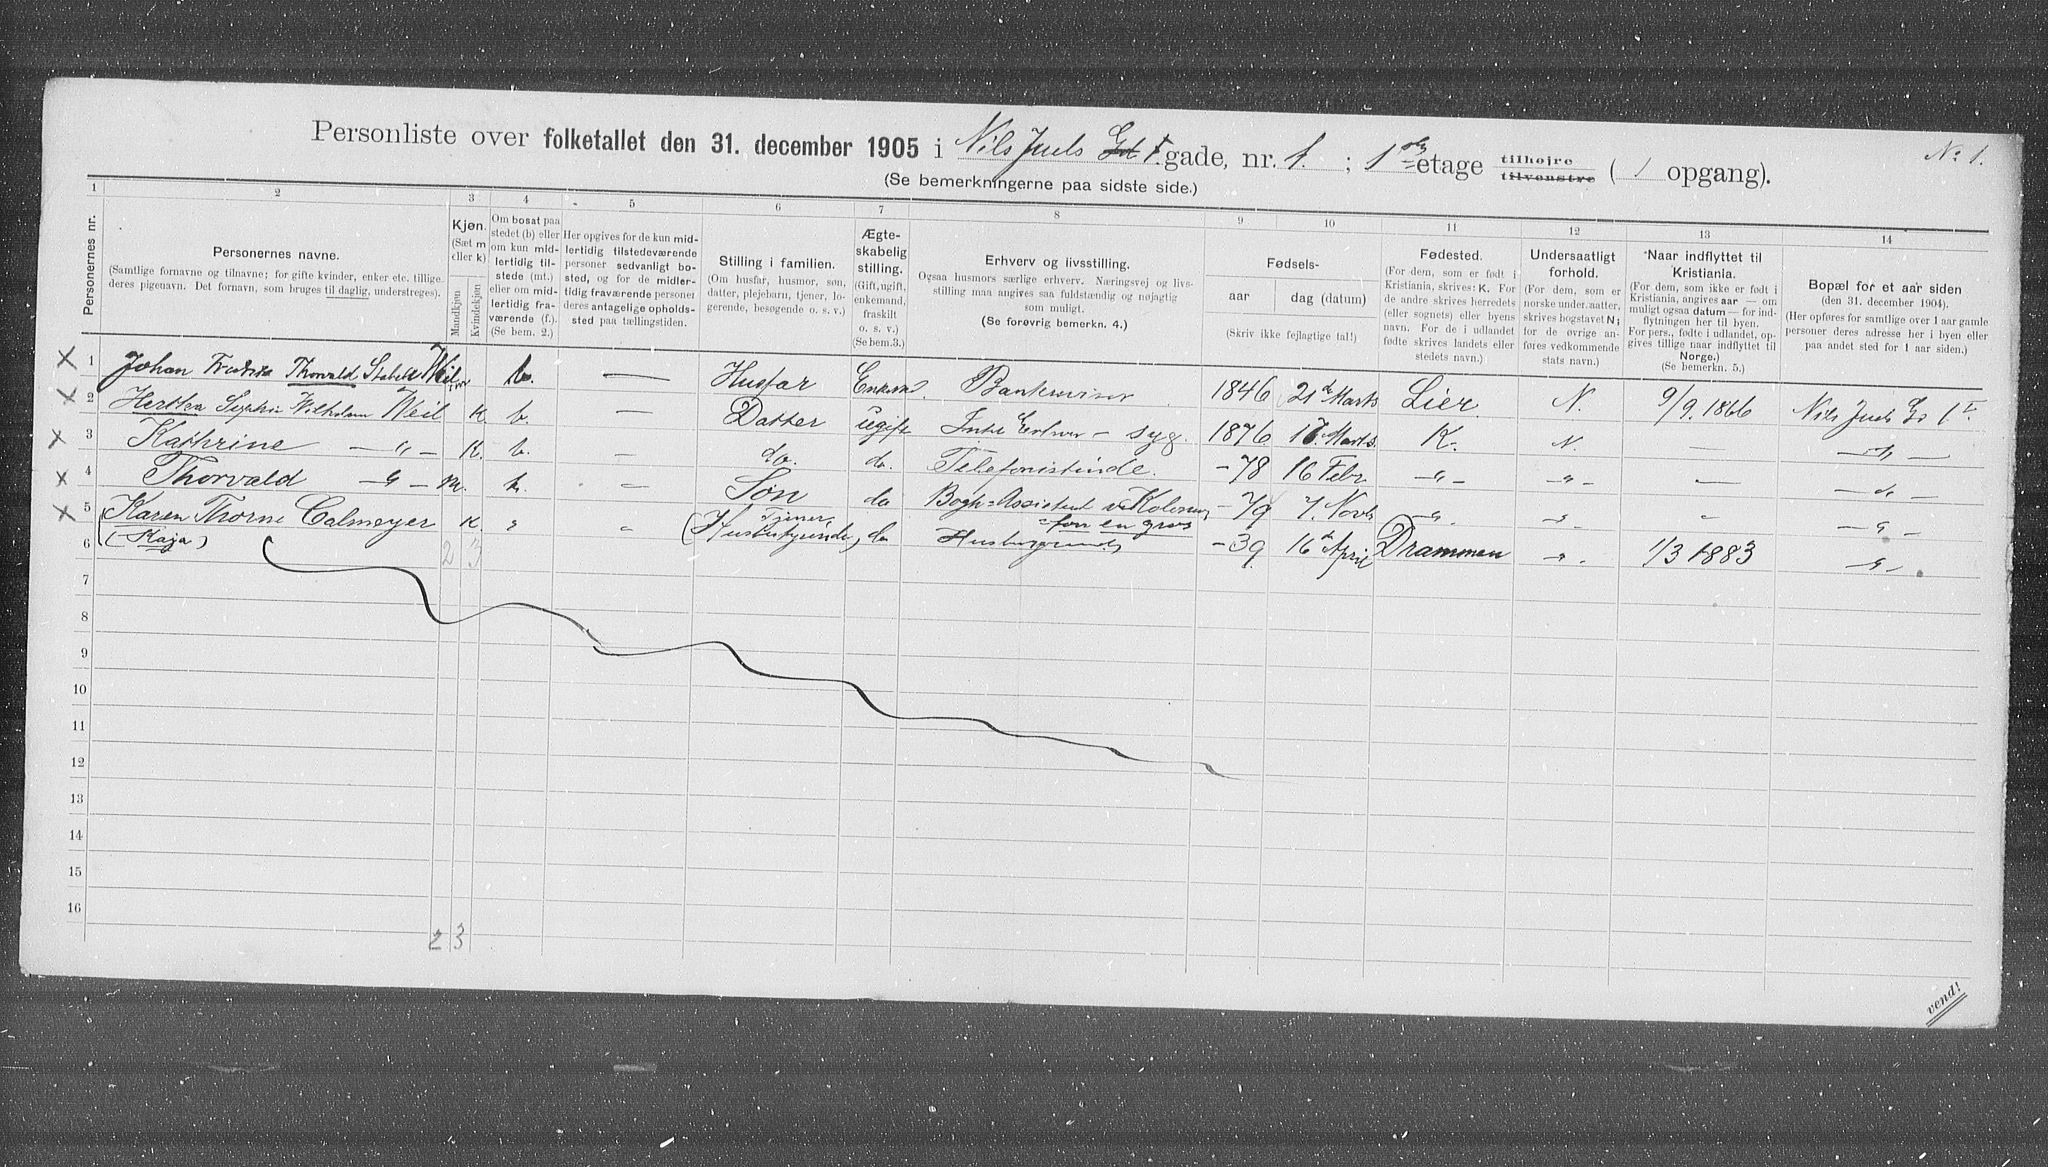 Personliste over folketallet den 31. december 1905 i Nils Juels Gd 1. gade, nr. 1. ; 1ste etage tilhøjre tilvenstre ( 1 opgang). No 1.
(Se bemerkningerne paa sidste side.)
1 2 3 4 5 6 7 8 9 10 11 12 13 14
Personernes nr.
Personernes navne.
(Samtlige fornavne og tilnavne; for gifte kvinder, enker etc. tillige
deres pigenavn. Det fornavn, som bruges til daglig, understreges).
Kjøn.
(Sæt m
eller k)
Mandkjøn
Kvindekjøn
Om bosat paa
stedet (b) eller
om kun mid-
lertidig til-
stede (mt.)
eller om mid-
lertidig fra-
værende (f.).
(Se bem. 2.)
Her opgives for de kun mid-
lertidig tilstedeværende
personer sedvanligt bo-
sted, og for de midler-
tidig fraværende personer
deres antagelige opholds-
sted paa tællingstiden.
Stilling i familien.
(Om husfar, husmor, søn,
datter, plejebarn, tjener, lo-
gerende, besøgende o. s. v.)
Ægte-
skabelig
stilling.
(Gift, ugift,
enkemand,
fraskilt
o. s. v.)
(Se bem.3.)
Erhverv og livsstilling.
Ogsaa husmors særlige erhverv. Næringsvej og livs-
stilling maa angives saa fuldstændig og nøjagtig
som muligt.
(Se forøvrig bemerkn. 4.)
Fødsels-
aar dag (datum)
(Skriv ikke fejlagtige tal!)
Fødested.
(For dem, som er født i
Kristiania, skrives: K. For
de andre skrives herredets
(eller sognets) eller byens
navn. For de i udlandet
fødte skrives landets eller
stedets navn.)
Undersaatligt
forhold.
(For dem, som er
norske under.aatter,
skrives bogstavet N;
for de øvrige an-
føres vedkommende
stats navn.)
Naar indflyttet til
Kristiania.
(For dem, som ikke er født i
Kristiania, angives aar — om
muligt ogsaa datum — for ind-
flytningen her til byen.
For pers., fødte i udlandet, op-
gives tillige naar indflyttet til
Norge.)
(Se bemerkn. 5.)
Bopæl for et aar siden
(den 31. december 1904).
(Her opføres for samtlige over 1 aar gamle
personer deres adresse her i byen eller
paa andet sted for 1 aar siden.)
X 1 Johan Fredrik Thorvald Stabell Weil m b. — Husfar Enkem. Bankrevisor 1846 21de Marts Lier N. 9/9 1866 Nils Juels Gd 1 I
X 2 Hertha Sophie Wilhelm Weil K b. — Datter ugift Intet Erhverv - syg. 1876 17. Marts K. N. — — " —
X 3 Kathrine — " — K. b. — do. do. Telefonistinde. - 78 16 Febr — " — — " — — — " —
X 4 Thorvald — " — m. b. — Søn do Bogh-Assistent v. Kolonial- - 79 7. Novbr — " — — " — " — " —
forr. en gros
X 5 Karen Thorne Calmeyer K. " " (Tjener, Husbestyrinde) do Husbestyrinde - 39 16de April Drammen — " — 1/3 1883 — " —
6 (Kaja) 2 3
7
8
9
10
11
12
13
14
15
16
2 3
vend!